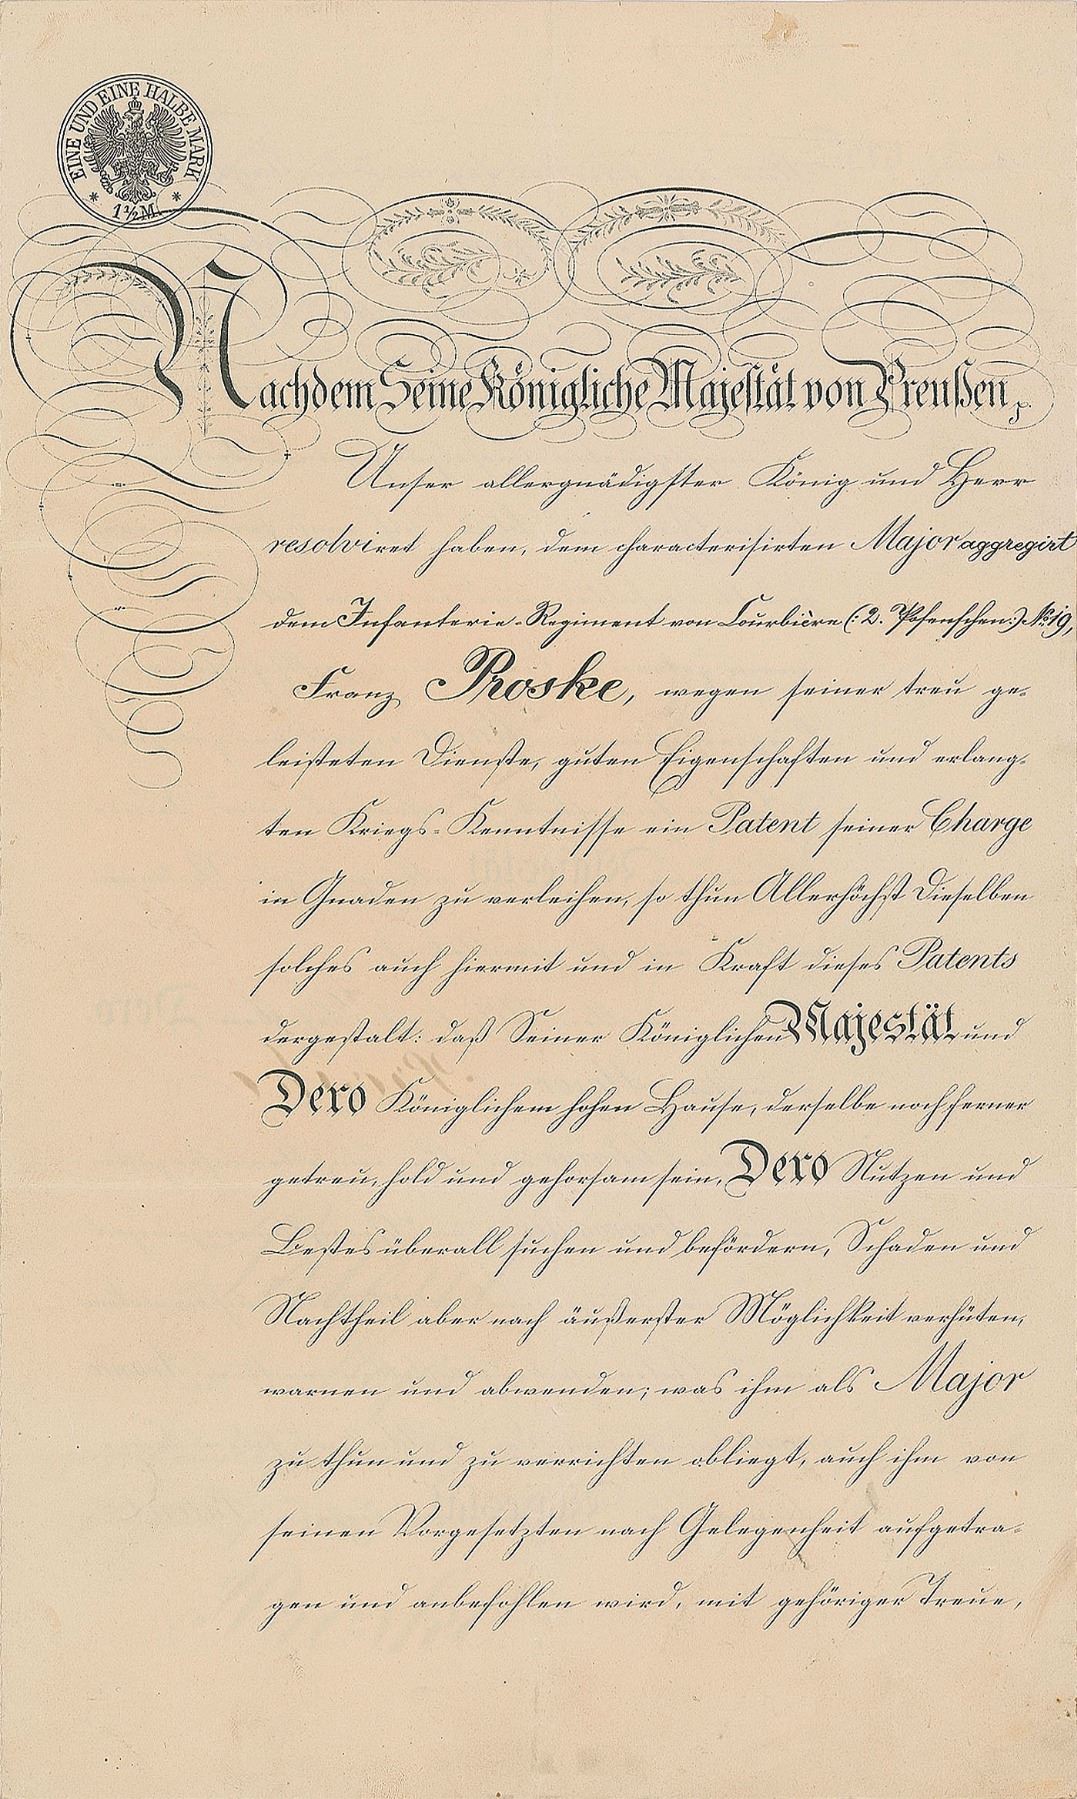 EINE UND EINE HALBE MARK
* 1½ M. *
Nachdem Seine Königliche Majestät von Preußen,
Unser allergnädigster König und Herr
resolviret haben, dem characterisirten Major aggregirt
dem Infanterie-Regiment von Courbière (:2. Posenschen:) No 19,
Franz Proske, wegen seiner treu ge-
leisteten Dienste, guten Eigenschaften und erlang-
ten Kriegs-Kenntnisse ein Patent seiner Charge
in Gnaden zu verleihen, so thun Allerhöchst Dieselben
solches auch hiermit und in Kraft dieses Patents
dergestalt: daß Seiner Königlichen Majestät und
Dero Königlichem hohen Hause, derselbe noch ferner
getreu, hold und gehorsam sein, Dero Nutzen und
Bestes überall suchen und befördern, Schaden und
Nachtheil aber nach äußerster Möglichkeit verhüten,
warnen und abwenden; was ihm als Major
zu thun und zu verrichten obliegt, auch ihm von
seinen Vorgesetzten nach Gelegenheit aufgetra-
gen und anbefohlen wird, mit gehöriger Treue,